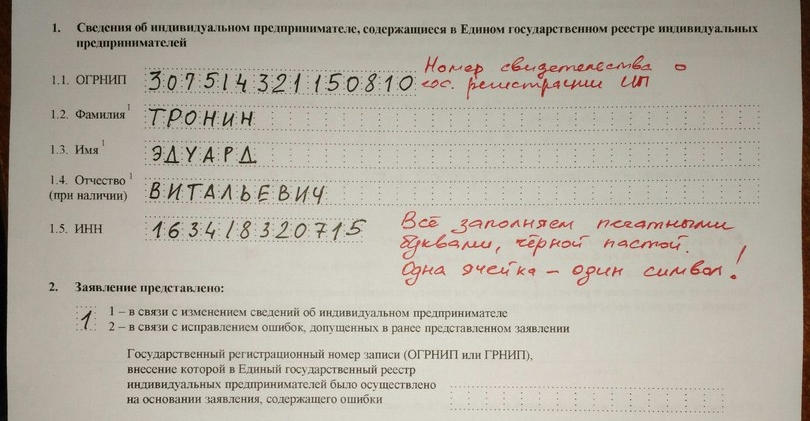 1. Сведения об индивидуальном предпринимателе, содержащиеся в Едином государственном реестре индивидуальных
предпринимателей
1.1. ОГРНИП 307514321150810
Номер свидетельства о
гос. регистрации ИП
1.2. Фамилия1 ТРОНИН
1.3. Имя1 ЭДУАРД
1.4. Отчество1
(при наличии) ВИТАЛЬЕВИЧ
1.5. ИНН 163418320715
Всё заполняем печатными
буквами, чёрной пастой.
Одна ячейка – один символ!
2. Заявление представлено:
1 1 – в связи с изменением сведений об индивидуальном предпринимателе
2 – в связи с исправлением ошибок, допущенных в ранее представленном заявлении
Государственный регистрационный номер записи (ОГРНИП или ГРНИП),
внесение которой в Единый государственный реестр
индивидуальных предпринимателей было осуществлено
на основании заявления, содержащего ошибки